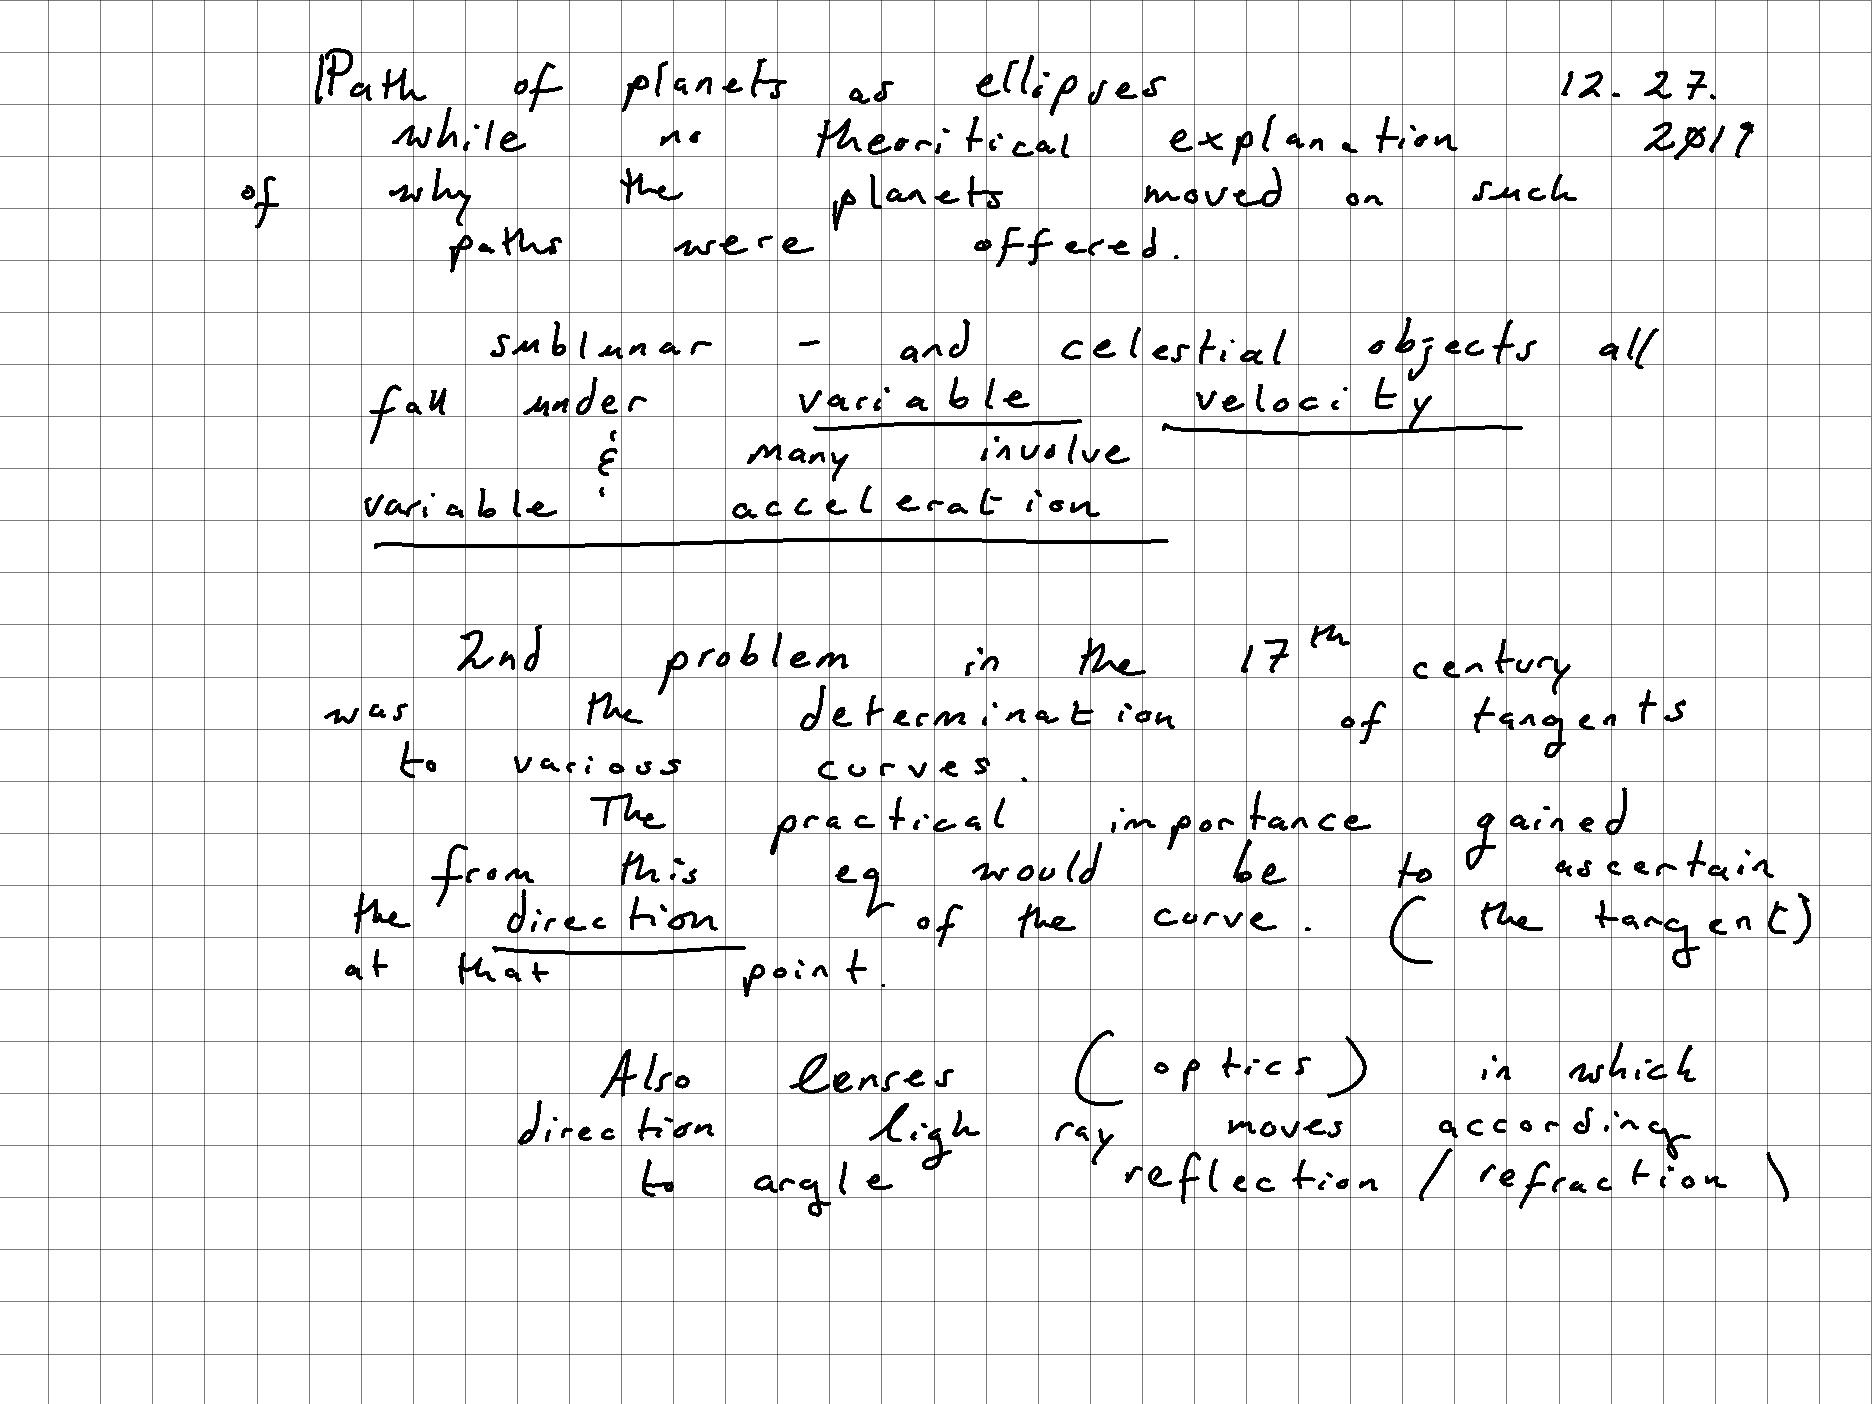 Path of planets as ellipses 12.27.
while no theoritical explanation 2019
of why the planets moved on such
paths were offered.
sublunar - and celestial objects all
fall under variable velocity
& many involve
variable acceleration
2nd problem in the 17th century
was the determination of tangents
to various curves.
The practical importance gained
from this eq would be to ascertain
the direction of the curve. (the tangent)
at that point.
Also lenses (optics) in which
direction ligh ray moves according
to angle reflection / refraction )